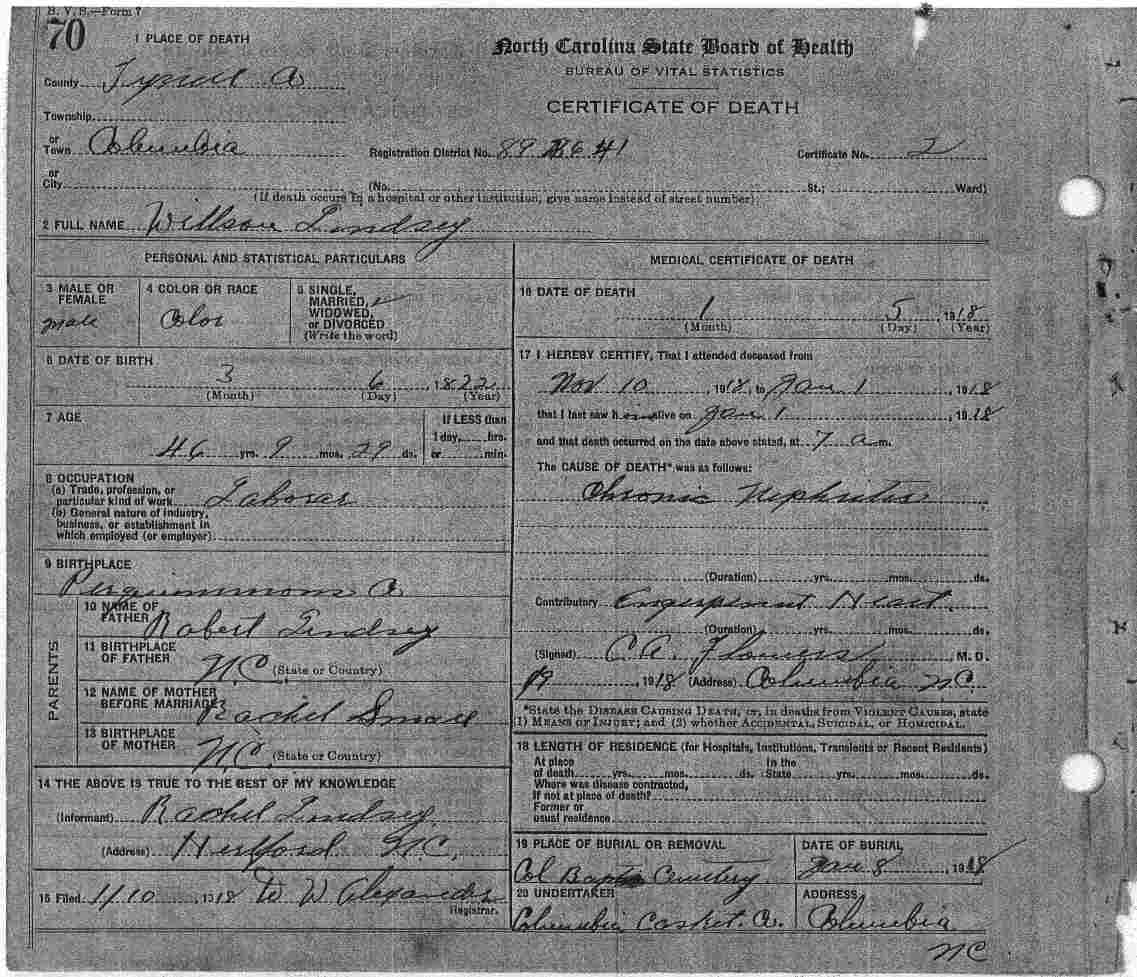 B. V. S.—Form 7
70
1 PLACE OF DEATH
North Carolina State Board of Health
BUREAU OF VITAL STATISTICS
CERTIFICATE OF DEATH
County Tyrrell Co
Township
or Town Columbia Registration District No. 89 Certificate No. 2
or City (No. St.; Ward)
(If death occurs in a hospital or other institution, give name instead of street number)
2 FULL NAME Willson Lindsey
PERSONAL AND STATISTICAL PARTICULARS
3 MALE OR FEMALE
male
4 COLOR OR RACE
Color
5 SINGLE, MARRIED, WIDOWED, or DIVORCED
(Write the word)
6 DATE OF BIRTH
3 6 , 1822
(Month) (Day) (Year)
7 AGE
46 yrs. 9 mos. 29 ds.
If LESS than
1 day, hrs.
or min.
8 OCCUPATION
(a) Trade, profession, or
particular kind of work Laborar
(b) General nature of industry,
business, or establishment in
which employed (or employer)
9 BIRTHPLACE
Perquimmons Co
PARENTS
10 NAME OF FATHER Robert Lindsey
11 BIRTHPLACE OF FATHER N.C. (State or Country)
12 NAME OF MOTHER BEFORE MARRIAGE Rachel
13 BIRTHPLACE OF MOTHER N.C. (State or Country)
14 THE ABOVE IS TRUE TO THE BEST OF MY KNOWLEDGE
(Informant) Rachel Lindsey
(Address) Hertford N.C.
15 Filed 1/10, 1918 W W Alexander
Registrar.
MEDICAL CERTIFICATE OF DEATH
16 DATE OF DEATH
1 5 , 1918
(Month) (Day) (Year)
17 I HEREBY CERTIFY, That I attended deceased from
Nov 10 , 1918, to Jan 1 , 1918
that I last saw him alive on Jan 1 , 1918
and that death occurred on the date above stated, at 7 a m.
The CAUSE OF DEATH* was as follows:
Chronic Nephritis
(Duration) yrs. mos. ds.
Contributory Heart.
(Duration) yrs. mos. ds.
(Signed) C. A. Flowers, M. D.
1918 (Address) Columbia N.C.
*State the DISEASE CAUSING DEATH, or, in deaths from VIOLENT CAUSES, state
(1) MEANS OF INJURY; and (2) whether ACCIDENTAL, SUICIDAL, OR HOMICIDAL.
18 LENGTH OF RESIDENCE (for Hospitals, Institutions, Transients or Recent Residents)
At place of death yrs. mos. ds. In the State yrs. mos. ds.
Where was disease contracted,
If not at place of death?
Former or
usual residence
19 PLACE OF BURIAL OR REMOVAL
Col Cemetery
DATE OF BURIAL
Jan 8 , 1918
20 UNDERTAKER
Columbia Casket Co.
ADDRESS
Columbia
NC